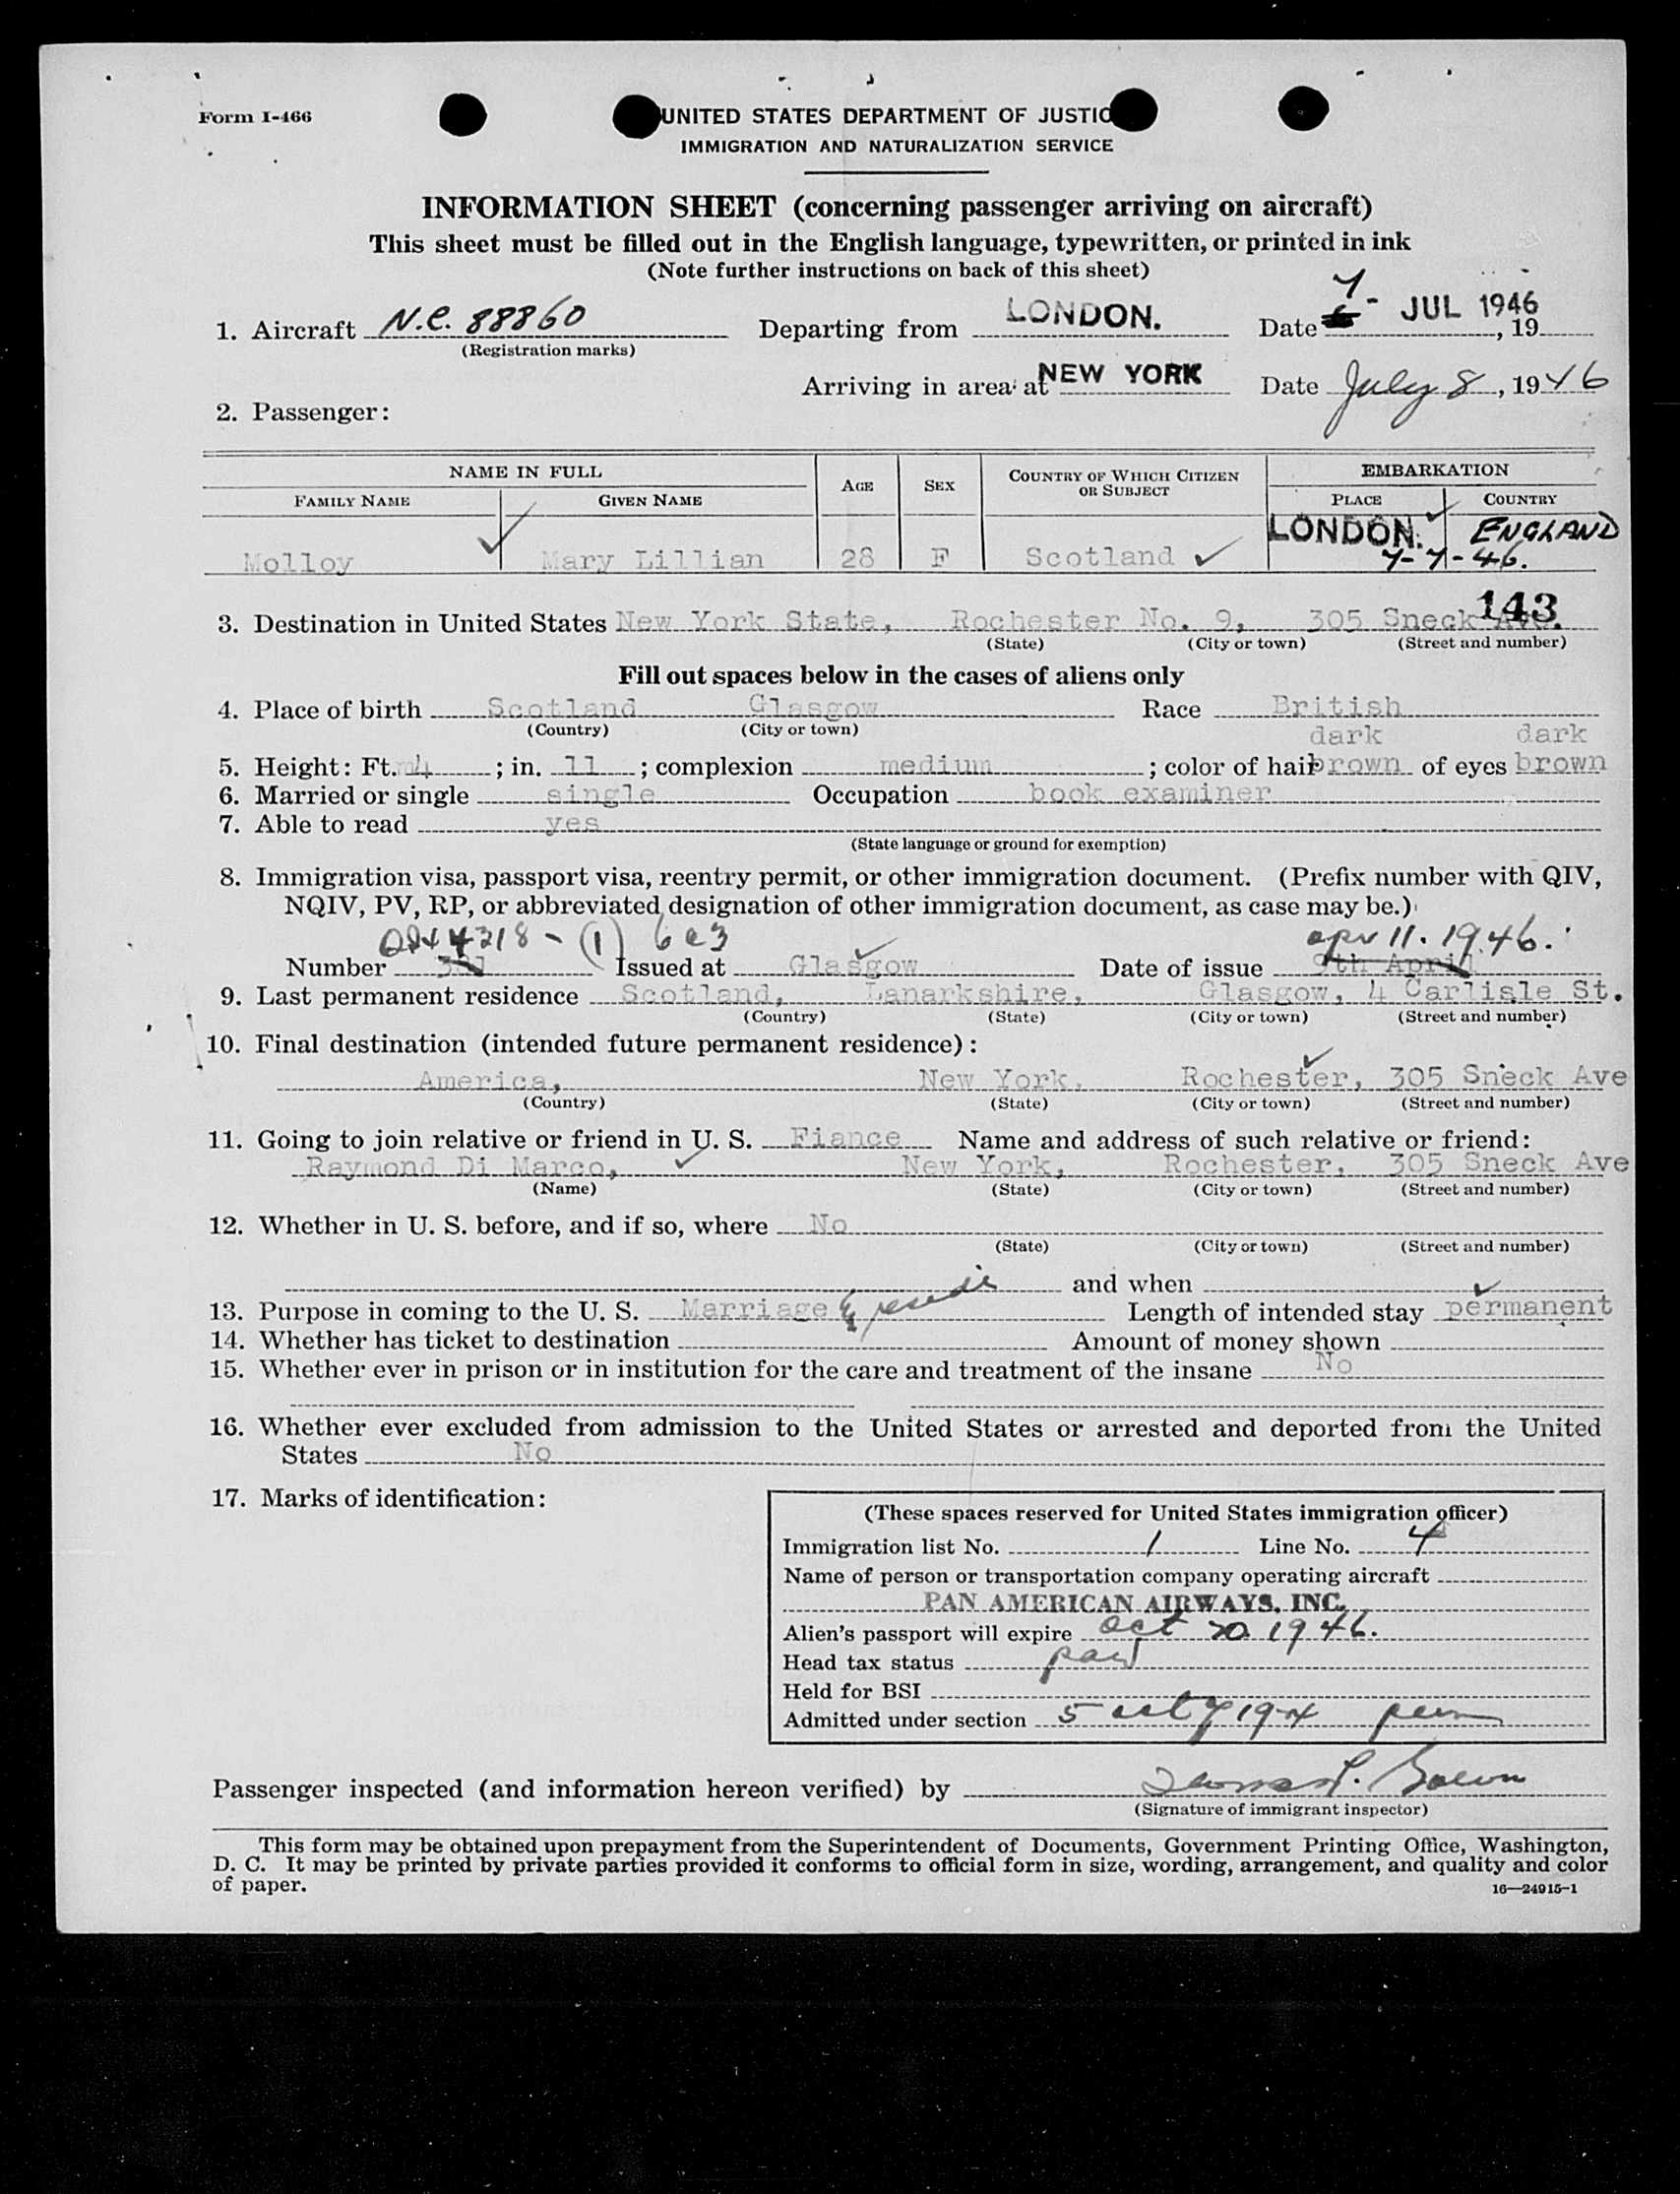 Form I-466
UNITED STATES DEPARTMENT OF JUSTIC
IMMIGRATION AND NATURALIZATION SERVICE
INFORMATION SHEET (concerning passenger arriving on aircraft)
This sheet must be filled out in the English language, typewritten, or printed in ink
(Note further instructions on back of this sheet)
1. Aircraft N.C. 88860 Departing from LONDON. Date 7 - JUL 1946, 19
(Registration marks)
Arriving in area at NEW YORK Date July 8, 1946
2. Passenger:
NAME IN FULL AGE SEX COUNTRY OF WHICH CITIZEN OR SUBJECT EMBARKATION
FAMILY NAME GIVEN NAME PLACE COUNTRY
Molloy Mary Lillian 28 F Scotland LONDON. ENGLAND
7-7-46.
143
3. Destination in United States New York State, Rochester No. 9, 305 Sneck Ave.
(State) (City or town) (Street and number)
Fill out spaces below in the cases of aliens only
4. Place of birth Scotland Glasgow Race British
(Country) (City or town)
dark dark
5. Height: Ft. 4; in. 11; complexion medium; color of hair brown of eyes brown
6. Married or single single Occupation book examiner
7. Able to read yes
(State language or ground for exemption)
8. Immigration visa, passport visa, reentry permit, or other immigration document. (Prefix number with QIV,
NQIV, PV, RP, or abbreviated designation of other immigration document, as case may be.)
4218 - (1) 6e3 apr 11. 1946.
Number Issued at Glasgow Date of issue 9th April
9. Last permanent residence Scotland, Lanarkshire, Glasgow, 4 Carlisle St.
(Country) (State) (City or town) (Street and number)
10. Final destination (intended future permanent residence):
America, New York, Rochester, 305 Sneck Ave
(Country) (State) (City or town) (Street and number)
11. Going to join relative or friend in U. S. Fiance Name and address of such relative or friend:
Raymond Di Marco, New York, Rochester, 305 Sneck Ave
(Name) (State) (City or town) (Street and number)
12. Whether in U. S. before, and if so, where No
(State) (City or town) (Street and number)
and when
13. Purpose in coming to the U. S. Marriage & reside Length of intended stay permanent
14. Whether has ticket to destination Amount of money shown
15. Whether ever in prison or in institution for the care and treatment of the insane No
16. Whether ever excluded from admission to the United States or arrested and deported from the United
States No
17. Marks of identification:
(These spaces reserved for United States immigration officer)
Immigration list No. 1 Line No. 4
Name of person or transportation company operating aircraft
PAN AMERICAN AIRWAYS, INC.
Alien's passport will expire Oct 20 1946.
Head tax status paid
Held for BSI
Admitted under section 5 act of 1924 perm
Passenger inspected (and information hereon verified) by
(Signature of immigrant inspector)
This form may be obtained upon prepayment from the Superintendent of Documents, Government Printing Office, Washington,
D. C. It may be printed by private parties provided it conforms to official form in size, wording, arrangement, and quality and color
of paper.
16—24915-1